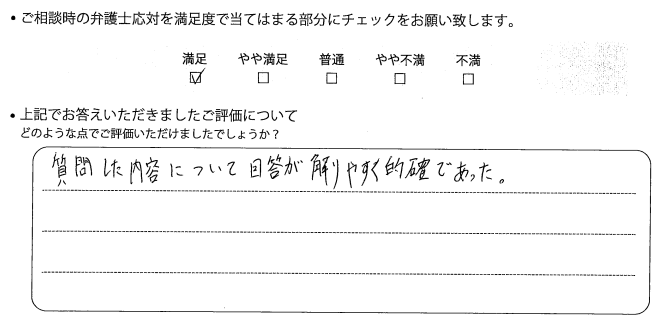 • ご相談時の弁護士応対を満足度で当てはまる部分にチェックをお願い致します。
満足 やや満足 普通 やや不満 不満
☑ □ □ □ □
• 上記でお答えいただきましたご評価について
どのような点でご評価いただけましたでしょうか？
質問した内容について回答が解りやすく的確であった。